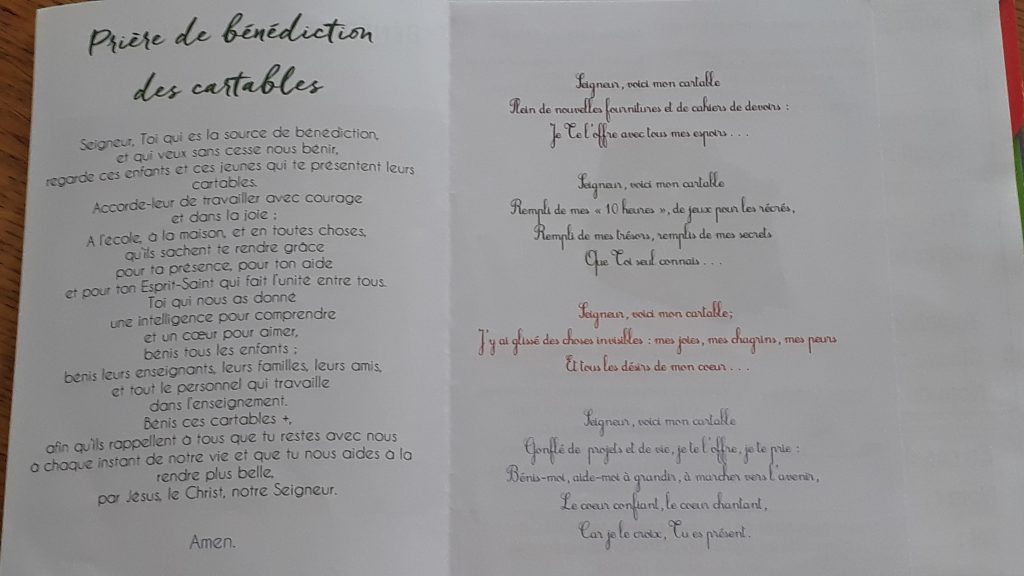 Prière de bénédiction
des cartables
Seigneur, Toi qui es la source de bénédiction,
et qui veux sans cesse nous bénir,
regarde ces enfants et ces jeunes qui te présentent leurs
cartables.
Accorde-leur de travailler avec courage
et dans la joie ;
A l'école, à la maison, et en toutes choses,
qu'ils sachent te rendre grâce
pour ta présence, pour ton aide
et pour ton Esprit-Saint qui fait l'unité entre tous.
Toi qui nous as donné
une intelligence pour comprendre
et un cœur pour aimer,
bénis tous les enfants ;
bénis leurs enseignants, leurs familles, leurs amis,
et tout le personnel qui travaille
dans l'enseignement.
Bénis ces cartables +,
afin qu'ils rappellent à tous que tu restes avec nous
à chaque instant de notre vie et que tu nous aides à la
rendre plus belle,
par Jésus, le Christ, notre Seigneur.
Amen.
Seigneur, voici mon cartable
Plein de nouvelles fournitures et de cahiers de devoirs :
Je Te l'offre avec tous mes espoirs . . .
Seigneur, voici mon cartable
Rempli de mes « 10 heures », de jeux pour les récrés,
Rempli de mes trésors, remplis de mes secrets
Que Toi seul connais . . .
Seigneur, voici mon cartable;
J'y ai glissé des choses invisibles : mes joies, mes chagrins, mes peurs
Et tous les désirs de mon coeur . . .
Seigneur, voici mon cartable
Gonflé de projets et de vie, je te l'offre, je te prie :
Bénis-moi, aide-moi à grandir, à marcher vers l'avenir,
Le coeur confiant, le coeur chantant,
Car je le crois, Tu es présent.